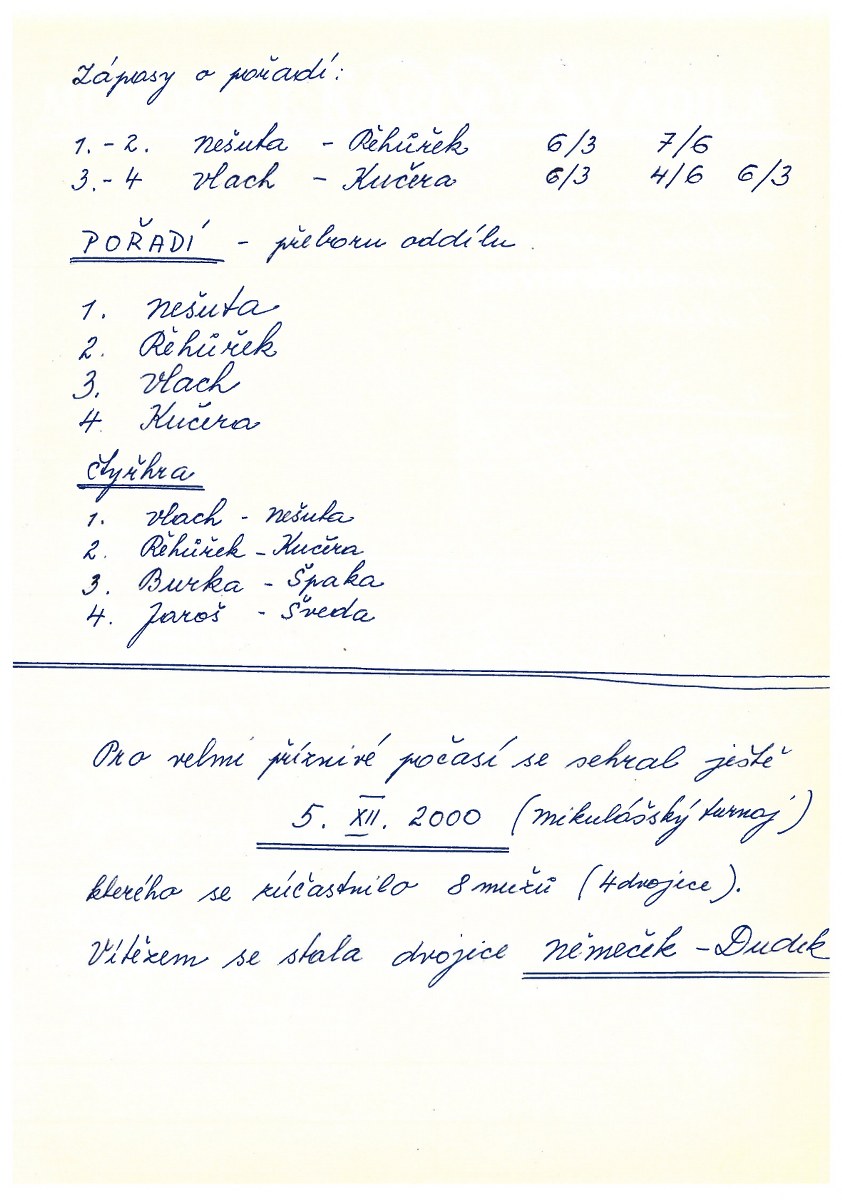 Zápasy o pořadí:
1. - 2. Nešuta - Řehůřek 6/3 7/6
3. - 4 Vlach - Kučera 6/3 4/6 6/3
POŘADÍ - přeboru oddílu.
1. Nešuta
2. Řehůřek
3. Vlach
4. Kučera
Čtyřhra
1. Vlach - Nešuta
2. Řehůřek - Kučera
3. Burka - Špaka
4. Jaroš - Šveda
Pro velmi příznivé počasí se sehrál ještě
5. XII. 2000 (mikulášský turnaj)
kterého se zúčastnilo 8 mužů (4 dvojice).
Vítězem se stala dvojice Němeček - Dudek